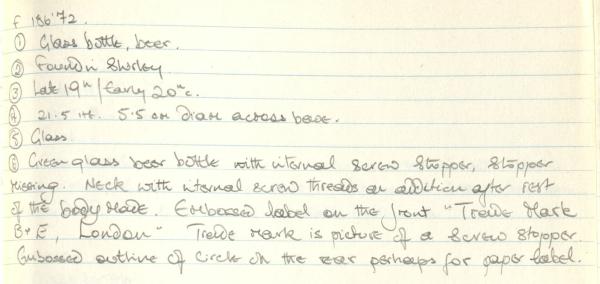 f 186'72.
① Glass bottle, beer.
② Found in Shirley
③ Late 19th / Early 20th c.
④ 21.5 Ht. 5.5 cm Diam across base.
⑤ Glass.
⑥ Green glass beer bottle with internal screw stopper, stopper
missing. Neck with internal screw threads an addition after rest
of the body made. Embossed label on the front "Trade Mark
B+E, London" Trade mark is picture of a screw stopper.
Embossed outline of circle on the rear perhaps for paper label.